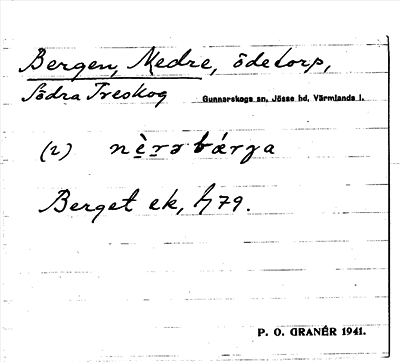 Bergen, Nedre, ödetorp,
Södra Treskog Gunnarskogs sn, Jösse hd, Värmlands l.
(2) nè̠rə bárɟa
Berget ek, h 79.
P. O. GRANÉR 1941.